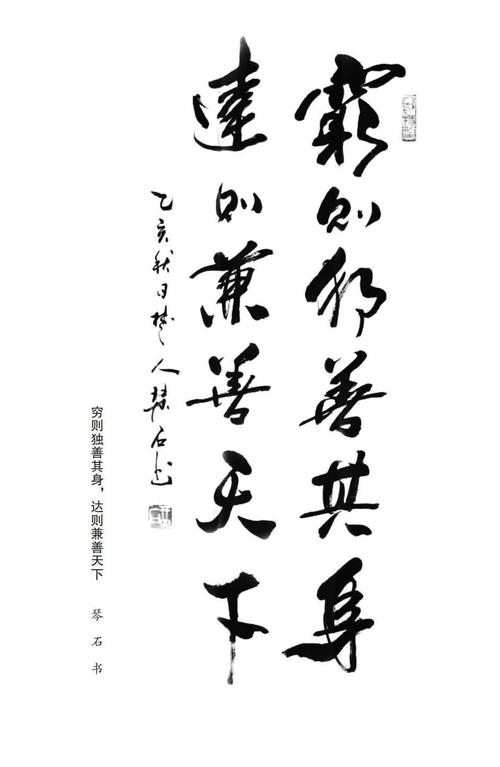 窮則独善其身
達則兼善天下
乙亥秋日楚人琴石书
穷则独善其身，达则兼善天下
琴石书